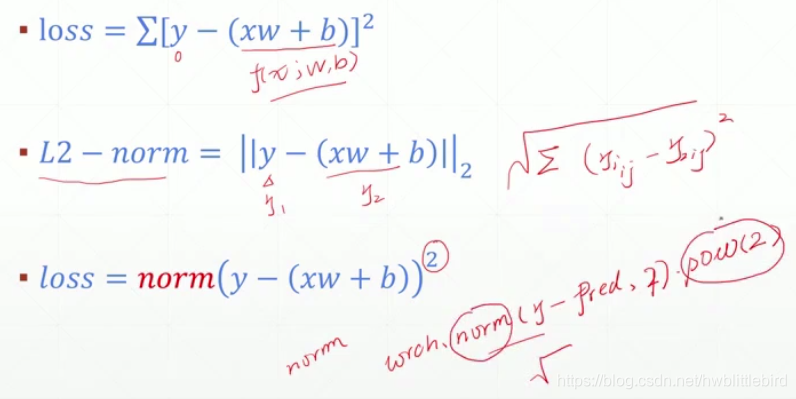 ▪ loss = ∑[y − (xw + b)]²
0
f(x; w, b)
▪ L2 − norm = ||y − (xw + b)||₂
√∑ (y₁ᵢⱼ − y₂ᵢⱼ)²
y₁ y₂
▪ loss = norm(y − (xw + b))²
norm
torch.norm(y − pred, 2).pow(2)
√
https://blog.csdn.net/hwblittlebird